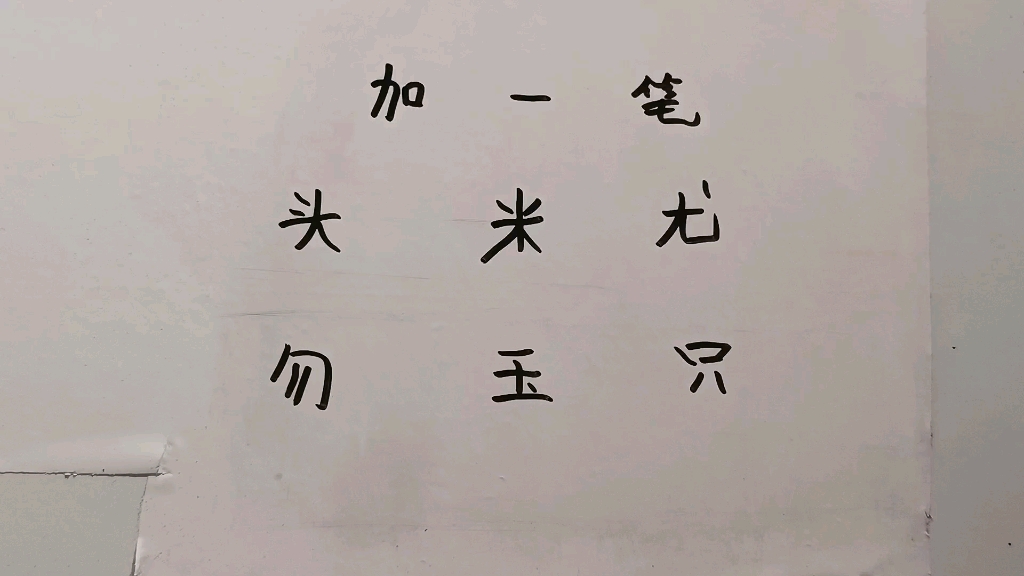 加 一 笔
头 米 尤
勿 玉 只